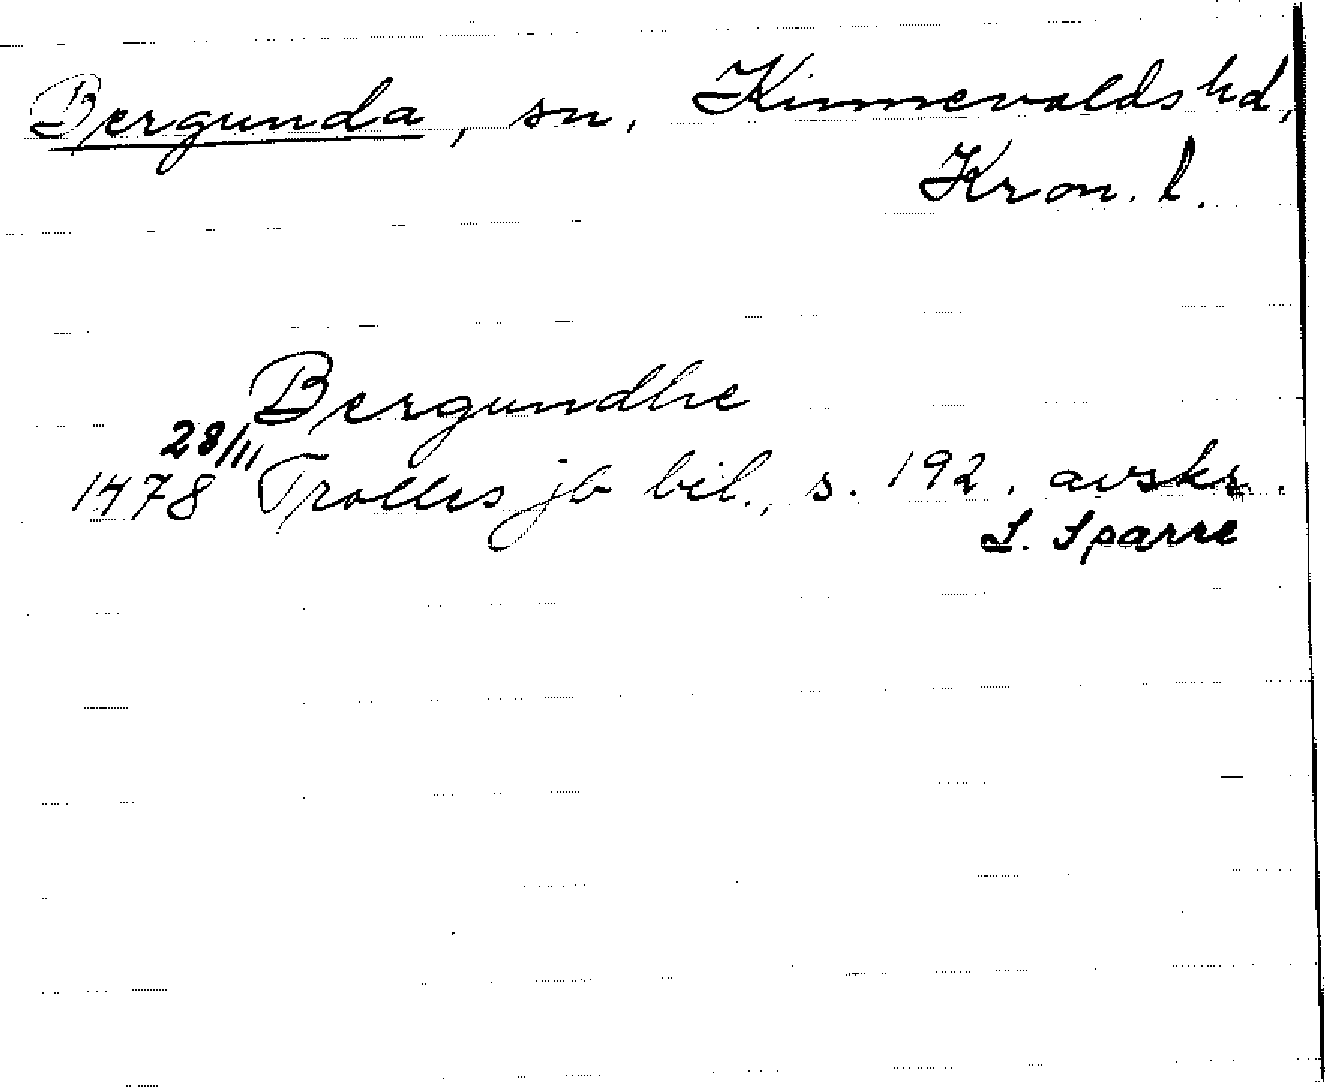 Bergunda, sn, Kinnevalds hd,
Kron. l.
Bergundhe
28/11
1478 Trolles jb bil., s. 192. avskr.
S. Sparre